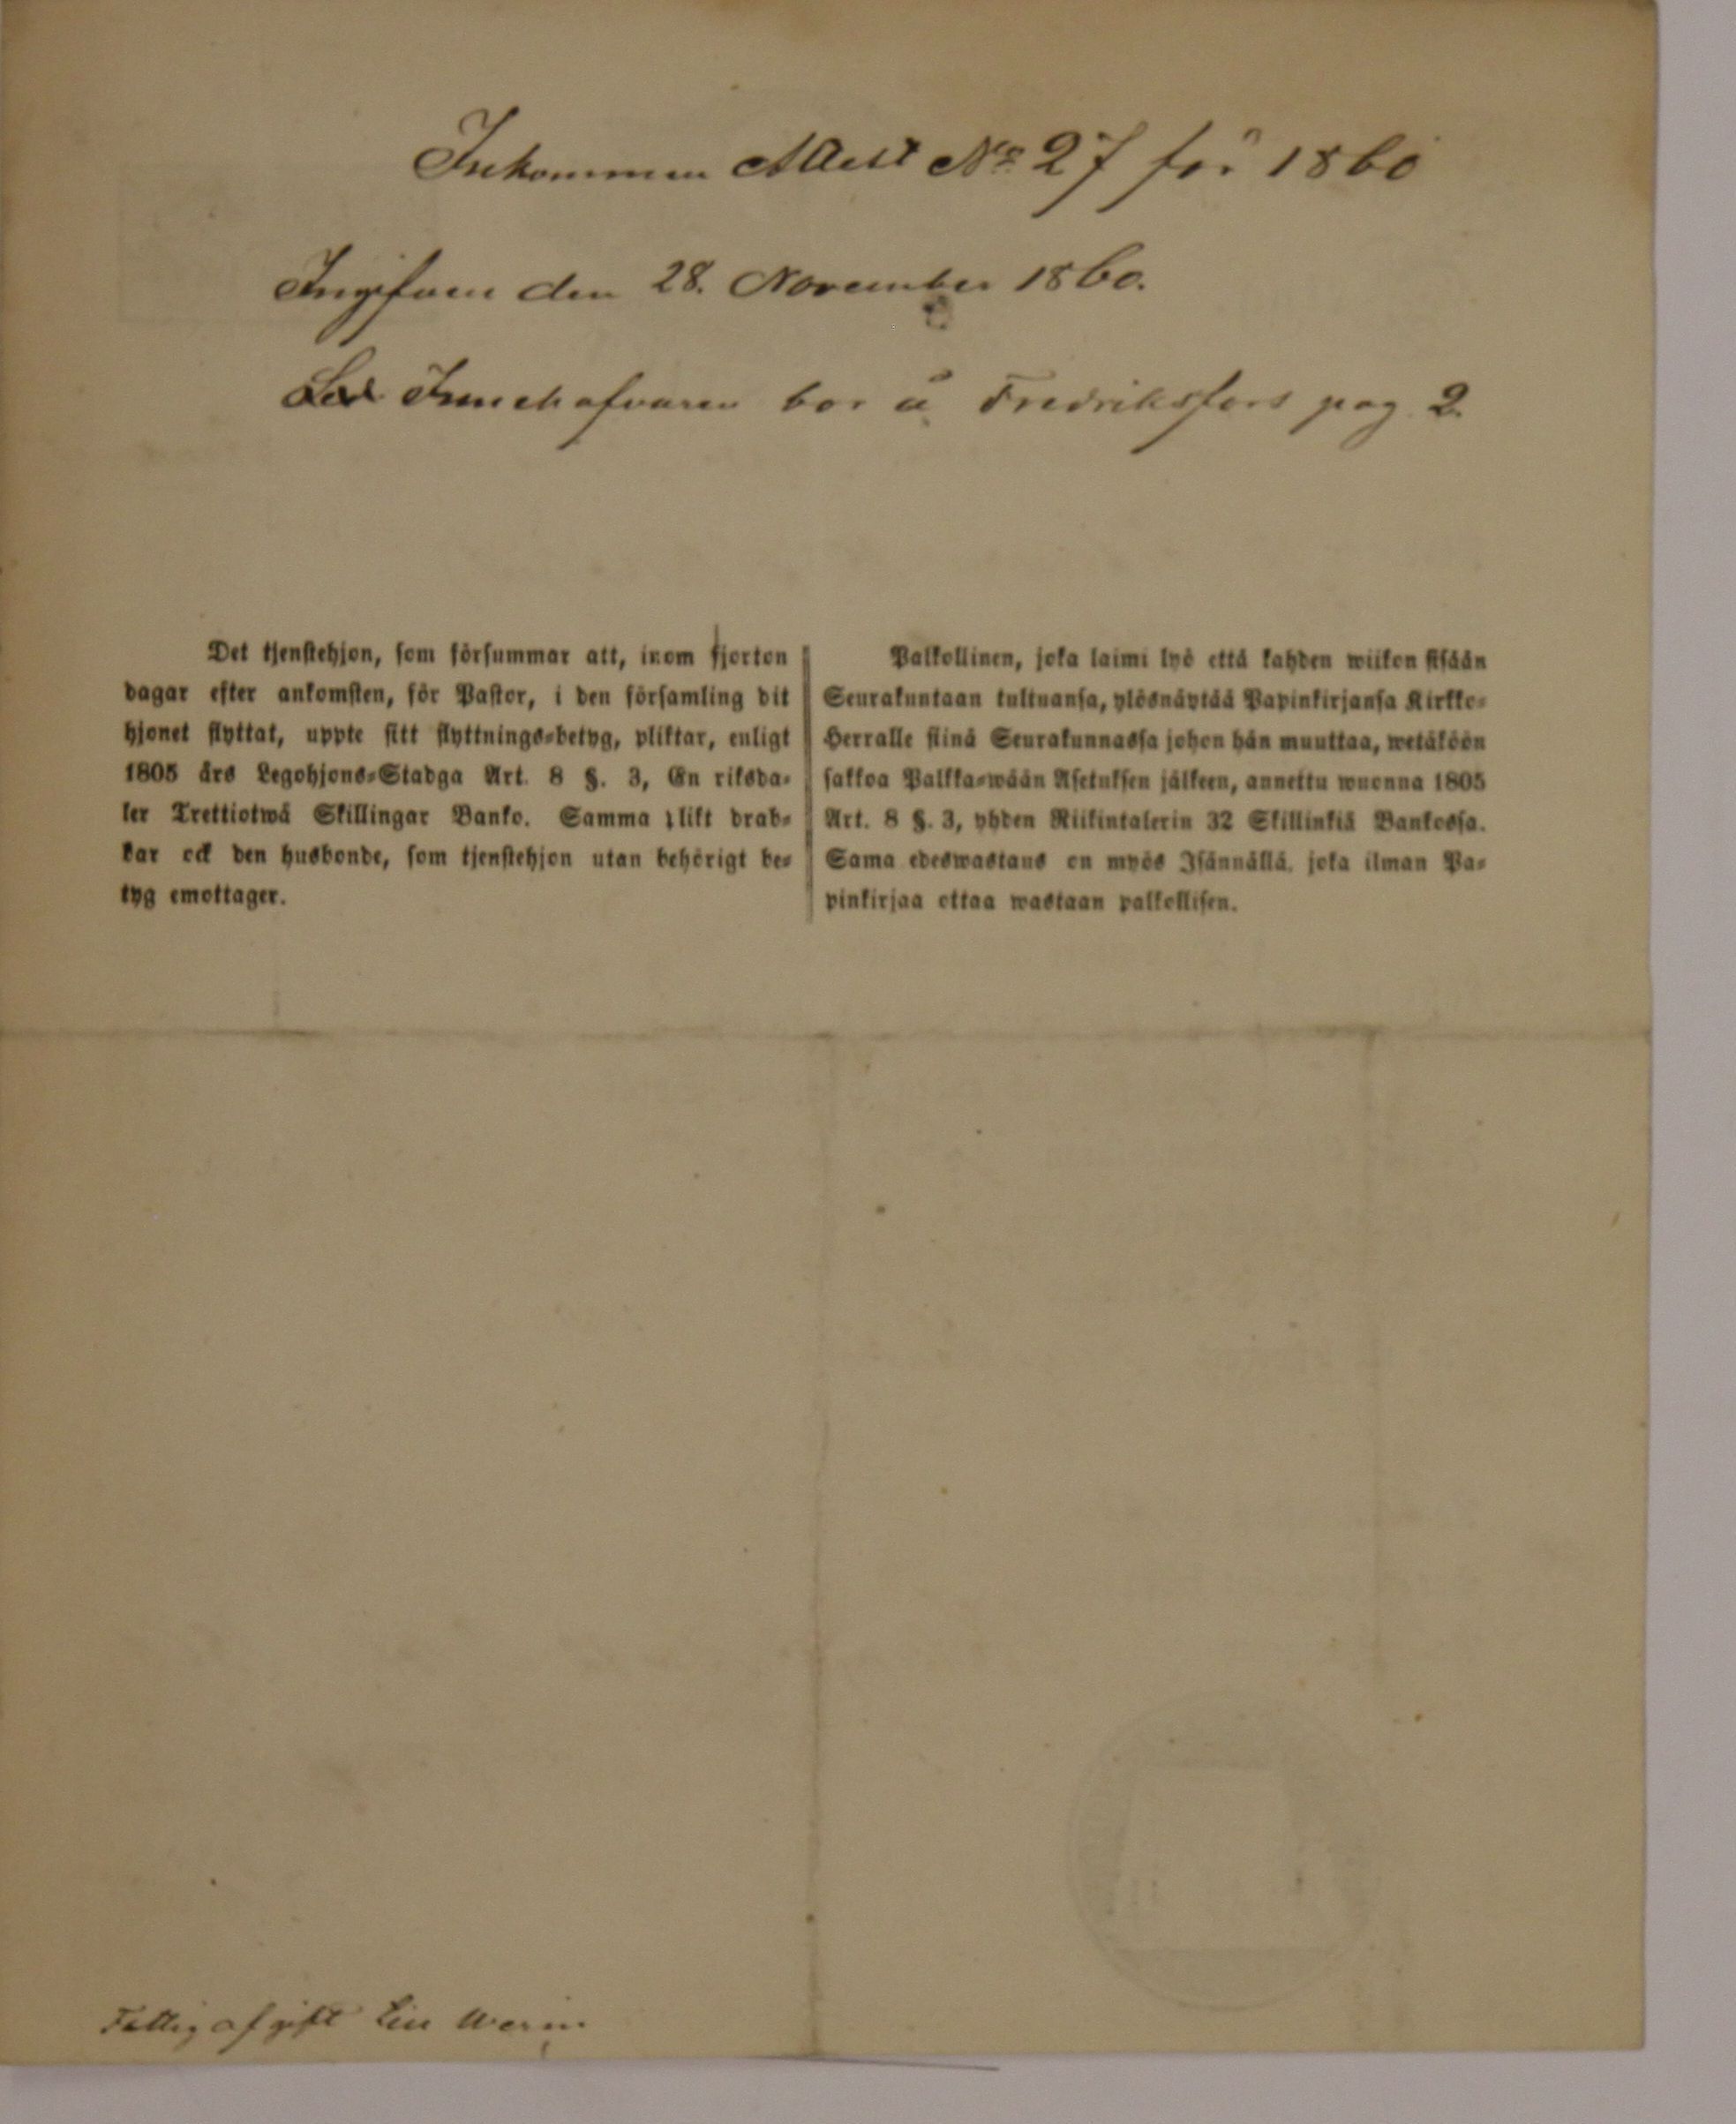 Inkommen Attest No 27 för 1860
Ingifven den 28. November 1860.
Innehafvaren bor å Fredriksfors pag 2.
Det tjenstehjon, som försummar att, inom fjorton
dagar efter ankomsten, för Pastor, i den församling dit
hjonet flyttat, uppte sitt flyttnings-betyg, pliktar, enligt
1805 års Legohjons-Stadga Art. 8 §. 3, En riksda-
ler Trettiotwå Skillingar Banko. Samma plikt drab-
bar ock den husbonde, som tjenstehjon utan behörigt be-
tyg emottager.
Palkollinen, joka laimi lyö että kahden wiikon sisään
Seurakuntaan tultuansa, ylösnäytää Papinkirjansa Kirkko-
Herralle siinä Seurakunnassa johon hän muuttaa, wetäköön
sakkoa Palkka-wään Asetuksen jälkeen, annettu wuonna 1805
Art. 8 §. 3, yhden Riikintalerin 32 Skillinkiä Bankossa.
Sama edeswastaus on myös Isännällä, joka ilman Pa-
pinkirjaa ottaa wastaan palkollisen.
Fattig afgift